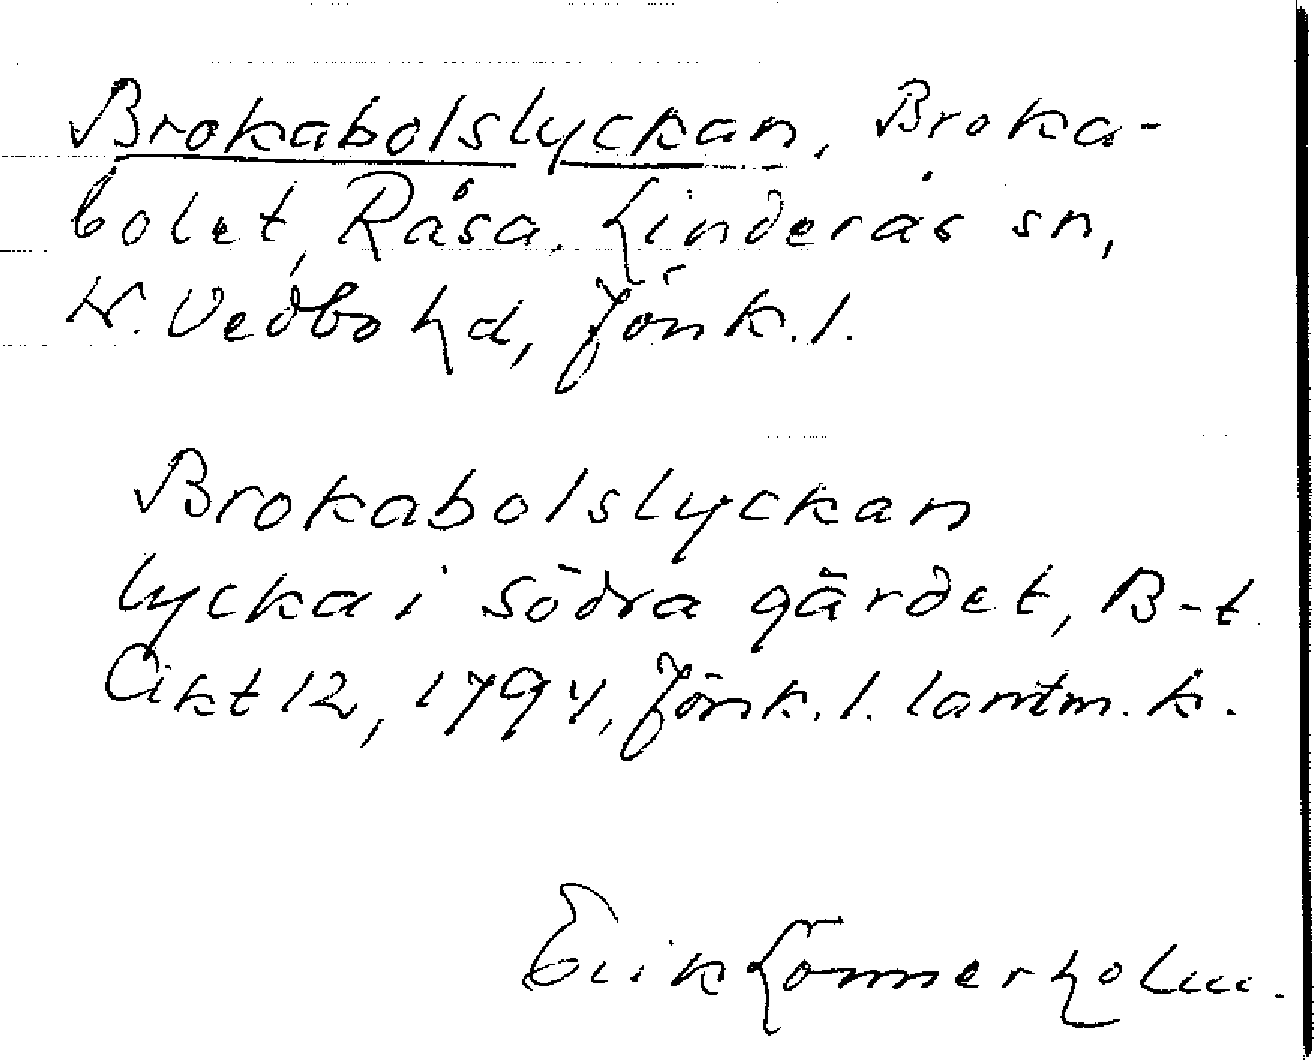 Brokabolslyckan, Broka-
bolet, Råsa. Linderås sn,
N. Vedbo hd, Jönk. l.
Brokabolslyckan
lycka i södra gärdet, B-t
Akt 12, 1794, Jönk. l. lantm. k.
Erik Lönnerholm.